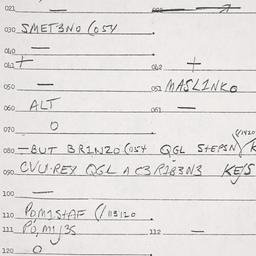 021 —
030 SMET3NO (054
040 —
041 + 042 +
050 — 051 MASL1NKO
060 ALT 061 —
070 O
080 —BUT BR1NZO (054 QGL STEPSN
090 CVU-REX QGL A C3 R183N3 KEJS
100 —
110 POM1STAF (/113120
111 PO, M1J3S 112 —
120 O